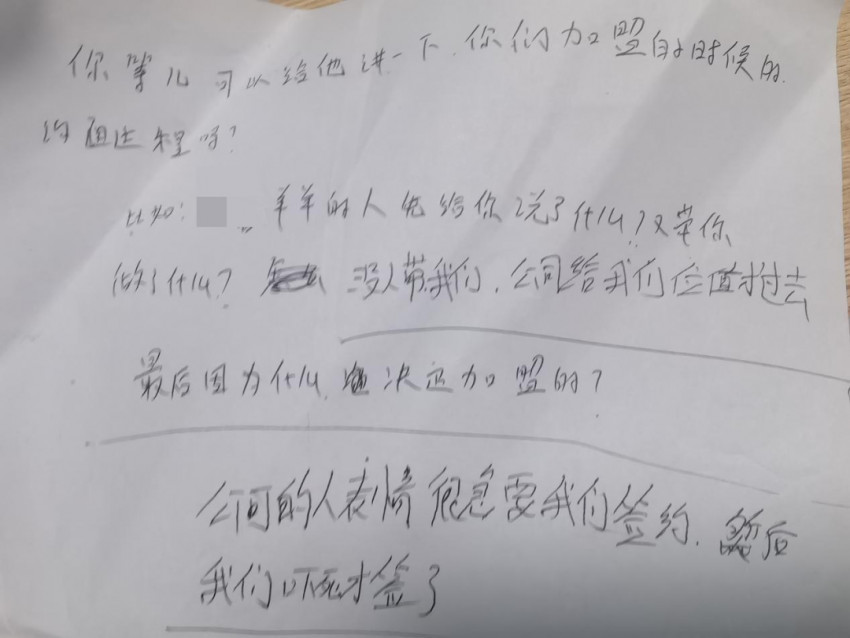 你等儿可以给他讲一下.你们加盟的时候的
的 过程吗?
比如: 羊羊的人先给你说了什么?又带你
做了什么? 没人带我们,公司给我们位置才过去
最后因为什么 决定加盟的?
公司的人表情很急要我们签约. 然后
我们吓死才签了